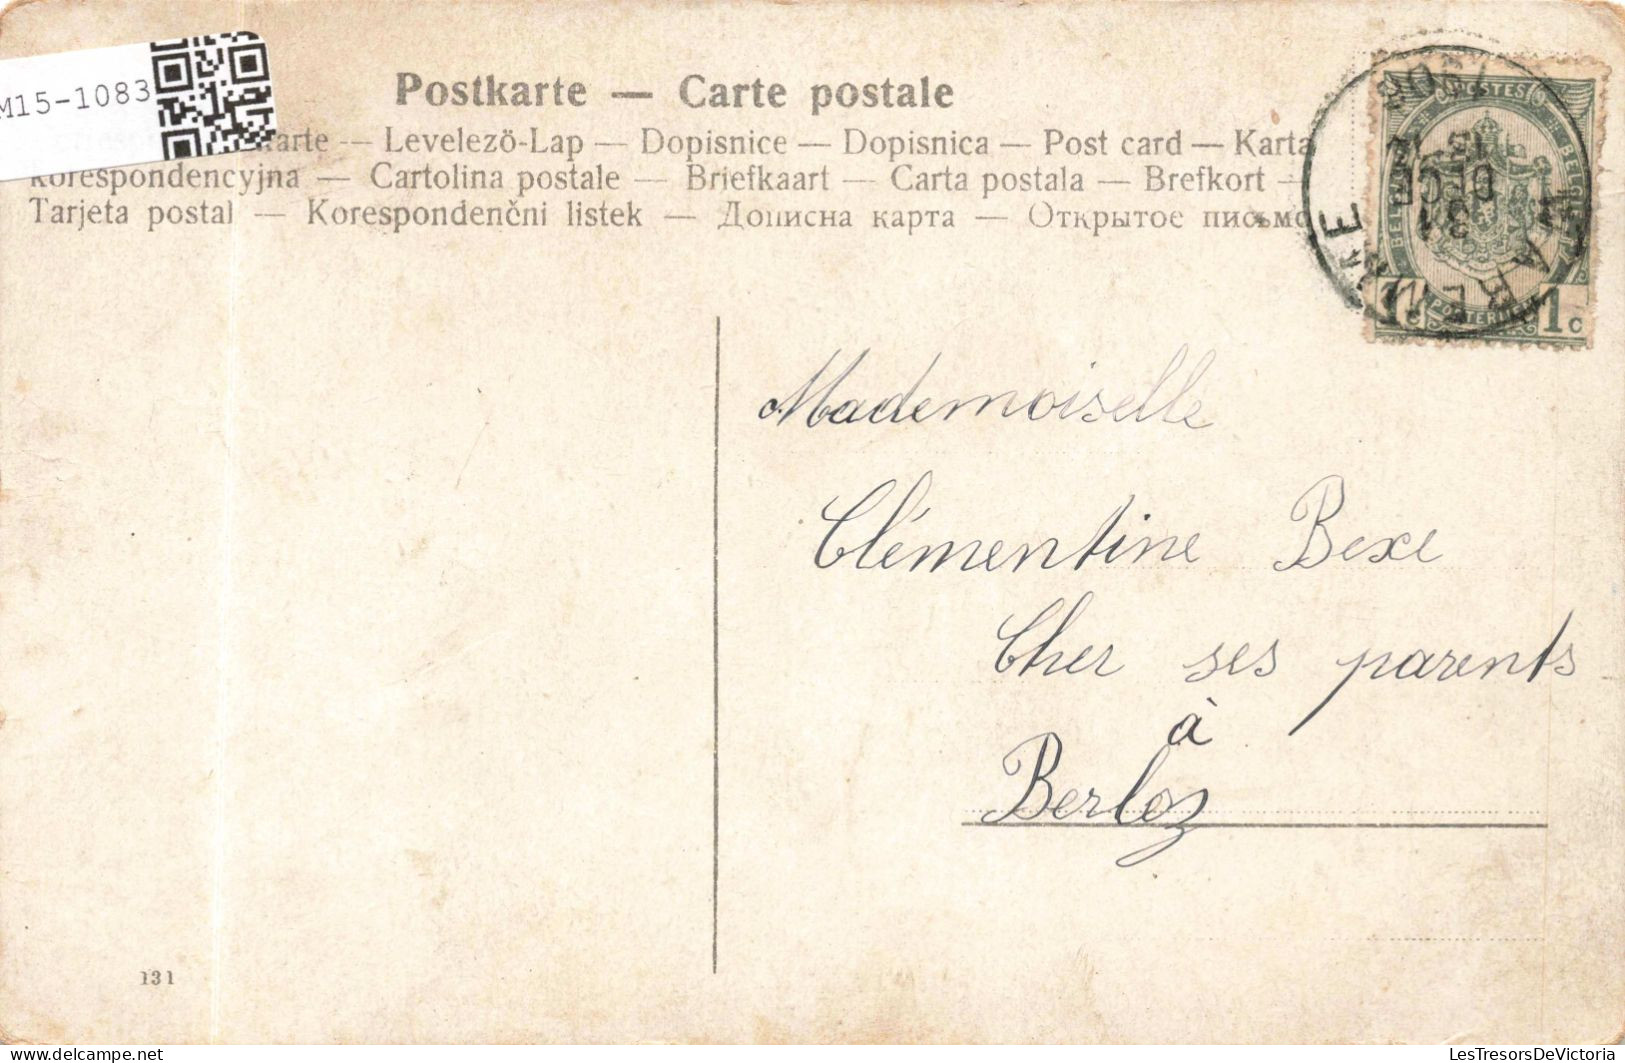 M15-1083
Postkarte — Carte postale
karte — Levelezö-Lap — Dopisnice — Dopisnica — Post card — Karta
korespondencyjna — Cartolina postale — Briefkaart — Carta postala — Brefkort —
Tarjeta postal — Korespondenčni listek — Дописна карта — Открытое письмо
POSTES
BELGIQUE
POSTERIJEN
1c 1c
WAREMME
31
DECE
Mademoiselle
Clémentine Bexe
Cher ses parents
à
Berloz
131
delcampe.net
LesTresorsDeVictoria